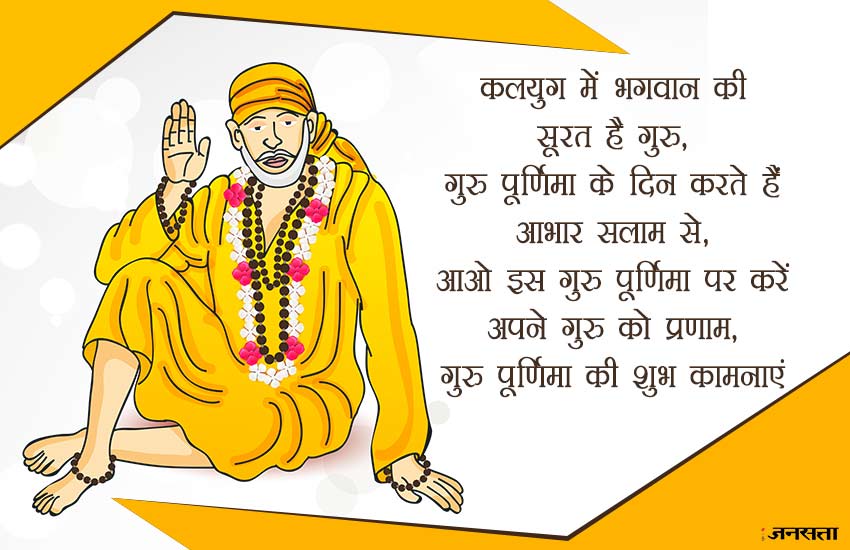 कलयुग में भगवान की
सूरत है गुरु,
गुरु पूर्णिमा के दिन करते हैं
आभार सलाम से,
आओ इस गुरु पूर्णिमा पर करें
अपने गुरु को प्रणाम,
गुरु पूर्णिमा की शुभ कामनाएं
जनसत्ता